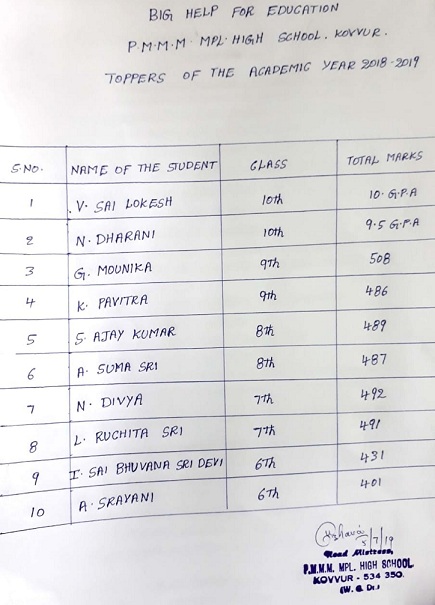 BIG HELP FOR EDUCATION
P.M.M.M MPL. HIGH SCHOOL. KOVVUR.
TOPPERS OF THE ACADEMIC YEAR 2018-2019
S.NO. NAME OF THE STUDENT CLASS TOTAL MARKS
1 V. SAI LOKESH 10th 10. G.P.A
2 N. DHARANI 10th 9.5 G.P.A
3 G. MOUNIKA 9Th 508
4 K. PAVITRA 9th 486
5 S. AJAY KUMAR 8th 489
6 A. SUMA SRI 8th 487
7 N. DIVYA 7th 492
8 L. RUCHITA SRI 7th 491
9 I. SAI BHUVANA SRI DEVI 6Th 431
10 A. SRAVANI 6Th 401
5/7/19
Head Mistress,
P.M.M.M. MPL. HIGH SCHOOL
KOVVUR - 534 350.
(W. G. Dt.)